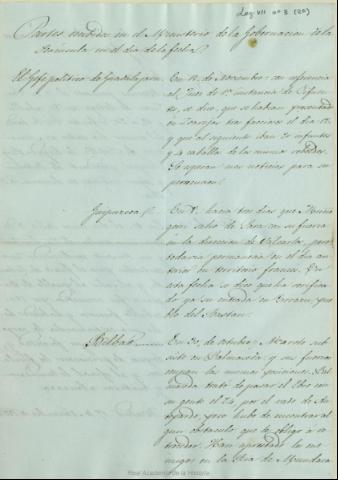 Leg VII nº 3 (20)
Partes recibidos en el Ministerio de la Gobernacion de la
Peninsula en el dia de la fecha.
El Gefe politico de Guadalajara.
En 12 de Noviembre: con referencia
al Juez de 1ª instancia de Cifuen-
tes, se dice, que se habian presentado
en Zaorejas tres facciosos el dia 12,
y que al siguiente iban 30 infantes
y 14 caballos de las mismas rebeldes.
Se aguardan mas noticias para su
persecucion.
Guipuzcoa
En 9, hacia tres dias que Munio
gorri salio de Sara con su fuerza
en la direccion de Valcarlos, pero
todavia permanecia en el dia an-
terior en territorio frances. En
esta fecha se dice que ha verifica-
do ya su entrada en Errazu, pue-
blo del Bastan.
Bilbao
En 30 de octubre, Alcardo sub-
siste en Balmaseda, y sus fuerzas
ocupan las mismas posiciones. Bal-
maseda trató de pasar el Ebro con
su gente el 24 por el vado de
pero hubo de encontrar al
gun obstaculo que le obligó a re-
troceder. Han apresado los ene-
migos en la Ria de Mundaca
Real Academia de la Historia